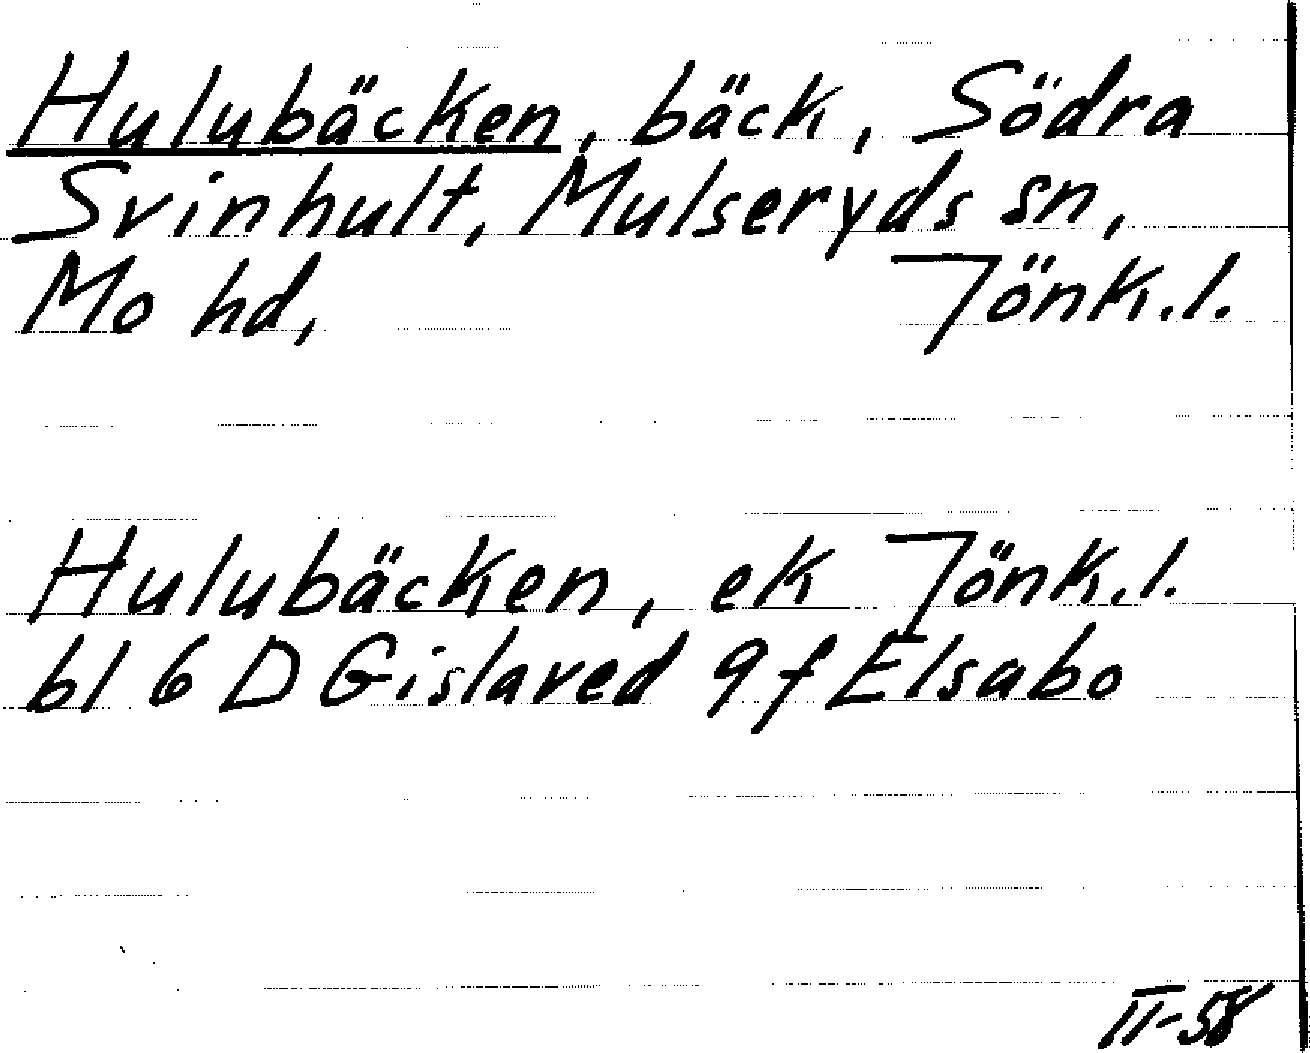 Hulubäcken, bäck, Södra
Svinhult, Mulseryds sn,
Mo hd, Jönk.l.
Hulubäcken, ek Jönk.l.
bl 6 D Gislaved 9 f Elsabo
II-58